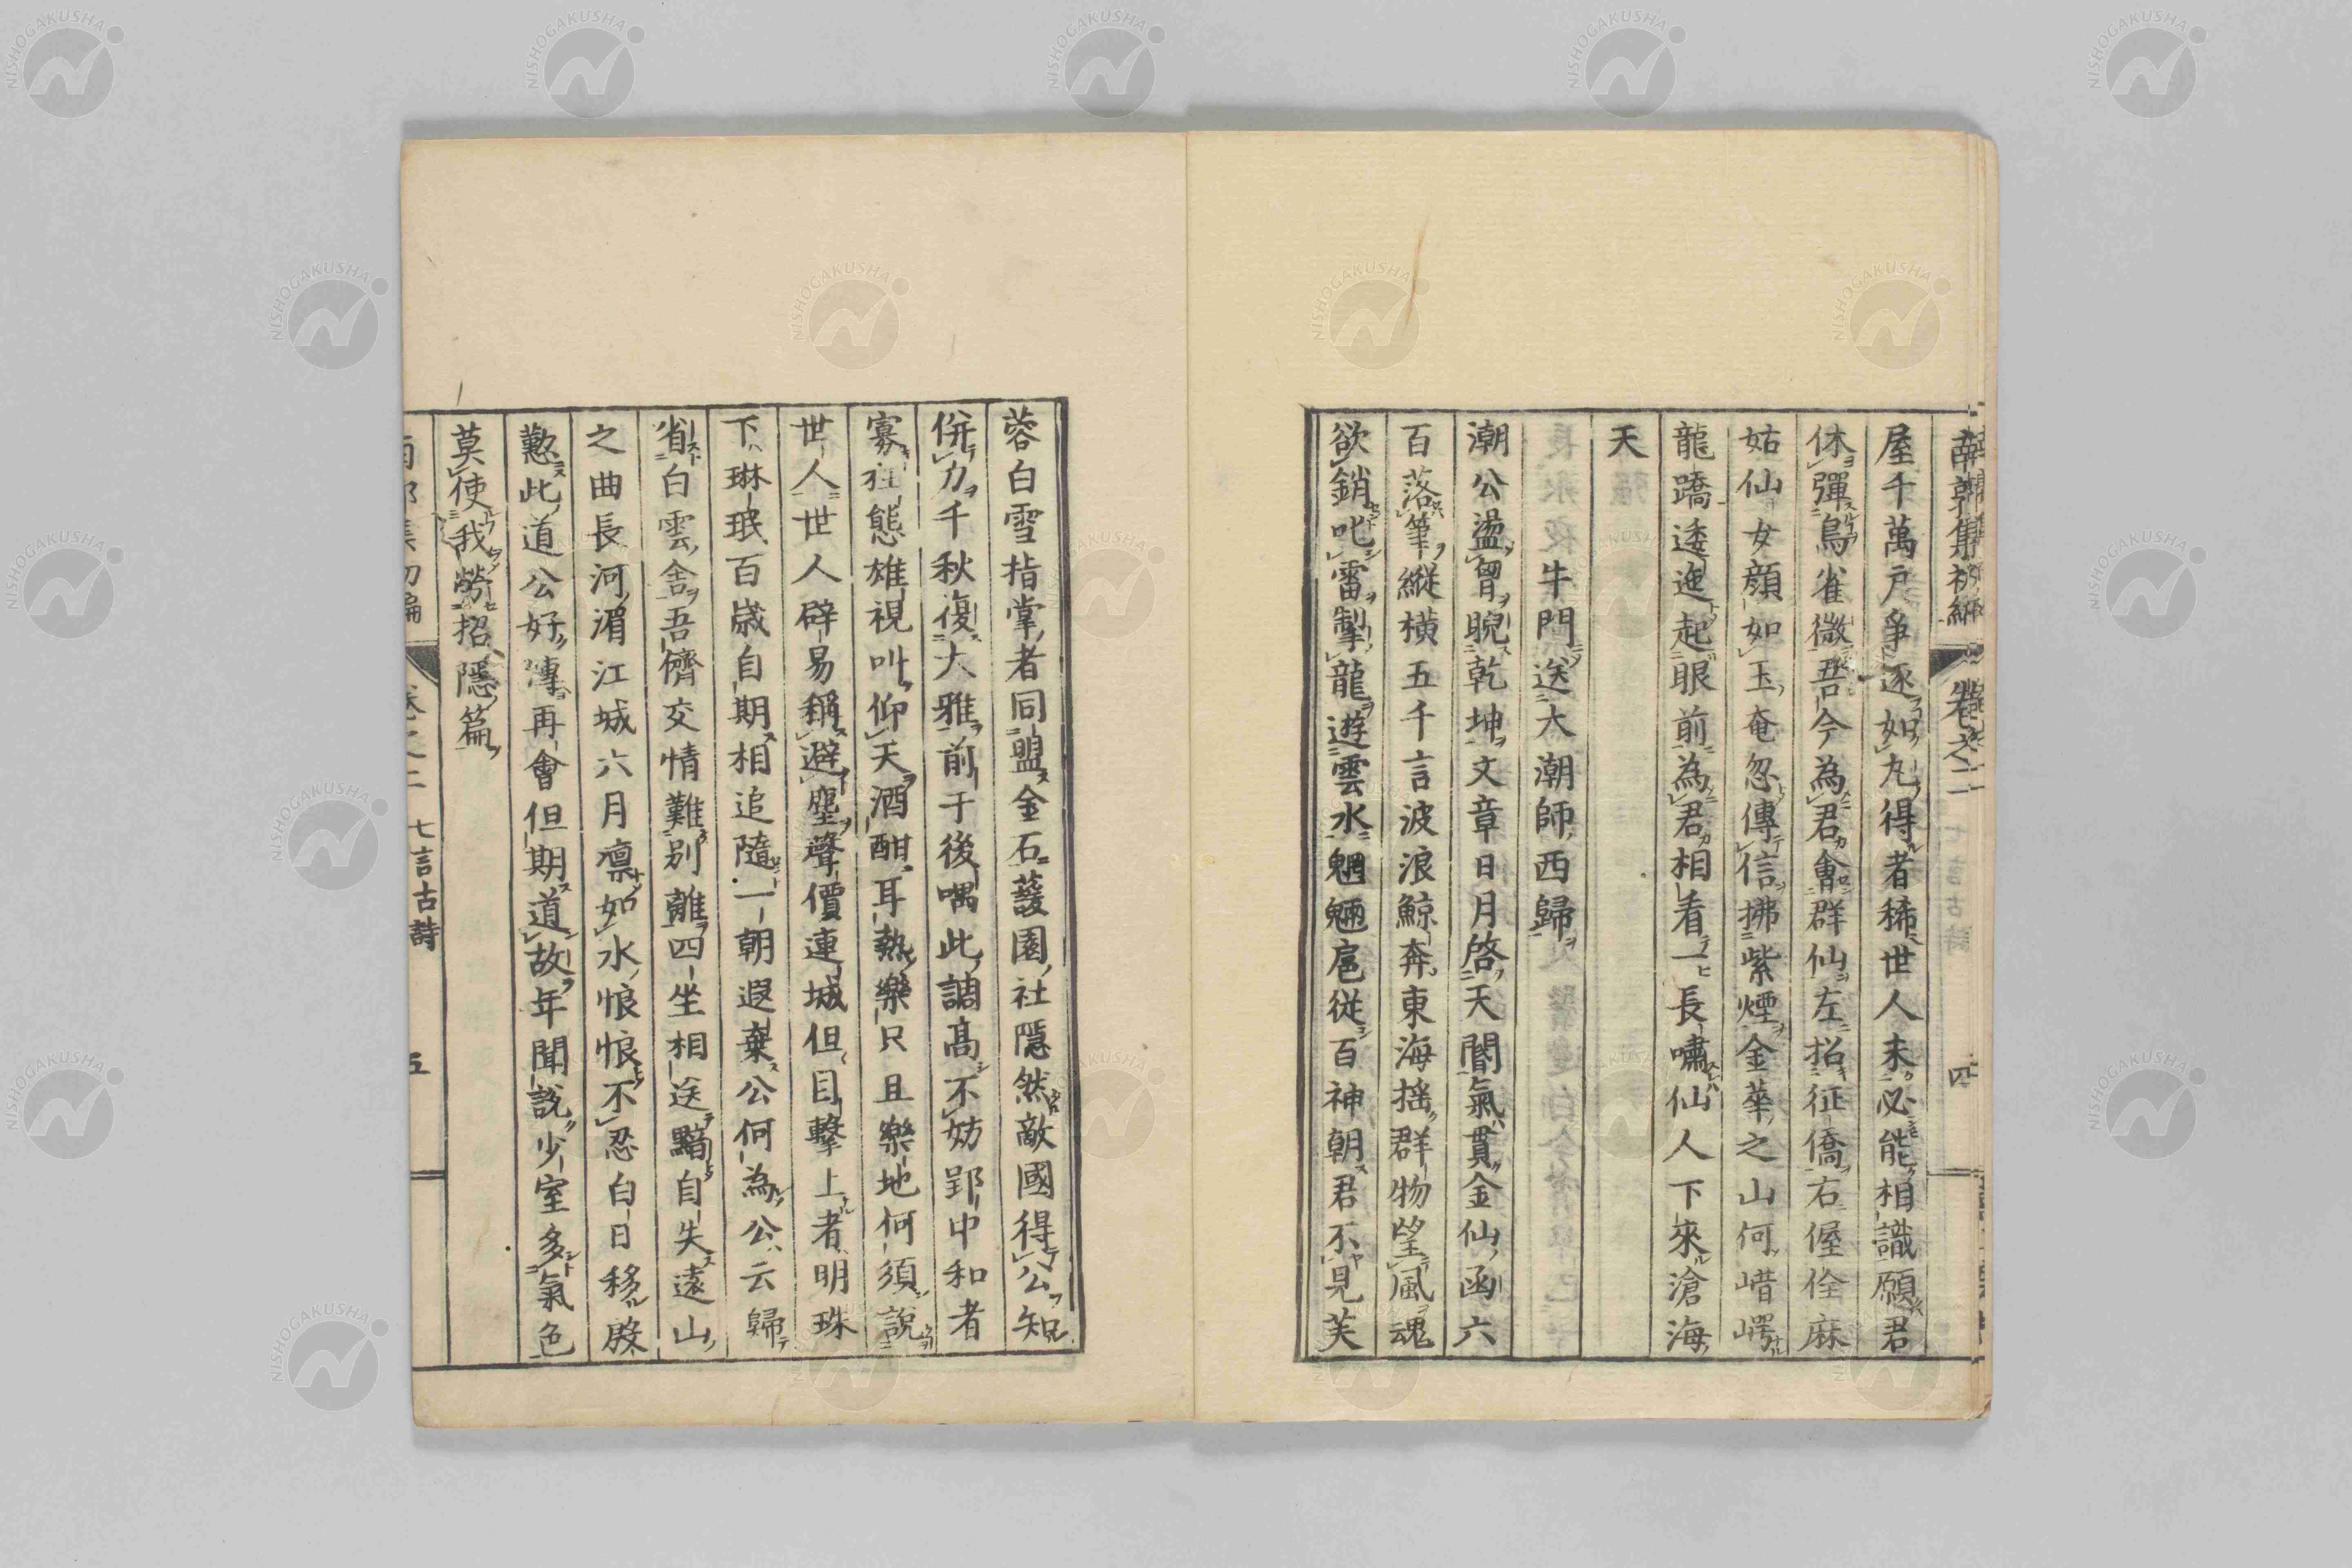 南郭集初編 卷之二 四
屋千萬戶爭逐如丸得者稀世人未必能相識願君
休彈鳥雀微吾今為君會群仙左招征僑右偓佺麻
姑仙女顏如玉奄忽傳信拂紫煙金華之山何㟙崿
龍蹻逶迤起眼前為君相看一長嘯仙人下來滄海
天
牛門送大潮師西歸
潮公盪胷睨乾坤文章日月啓天閽氣貫金仙函六
百落筆縱橫五千言波浪鯨奔東海搖群物望風魂
欲銷叱雷掣龍遊雲水魍魎扈從百神朝君不見芙
蓉白雪指掌者同盟金石蘐園社隱然敵國得公知
併力千秋復大雅前于後喁此調高不妨郢中和者
寡狂態雄視叫仰天酒酣耳熱樂只且樂地何須說
世人世人辟易稱避塵聲價連城但目擊上者明珠
下琳珉百歲自期相追隨一朝遐棄公何為公云歸
省白雲舍吾儕交情難別離四坐相送黯自失遠山
之曲長河湄江城六月凛如水悢悢不忍白日移殷
懃此道公好傳再會但期道故年聞說少室多氣色
莫使我勞招隱篇
南郭集初編 卷之二 七言古詩 五
NISHOGAKUSHA